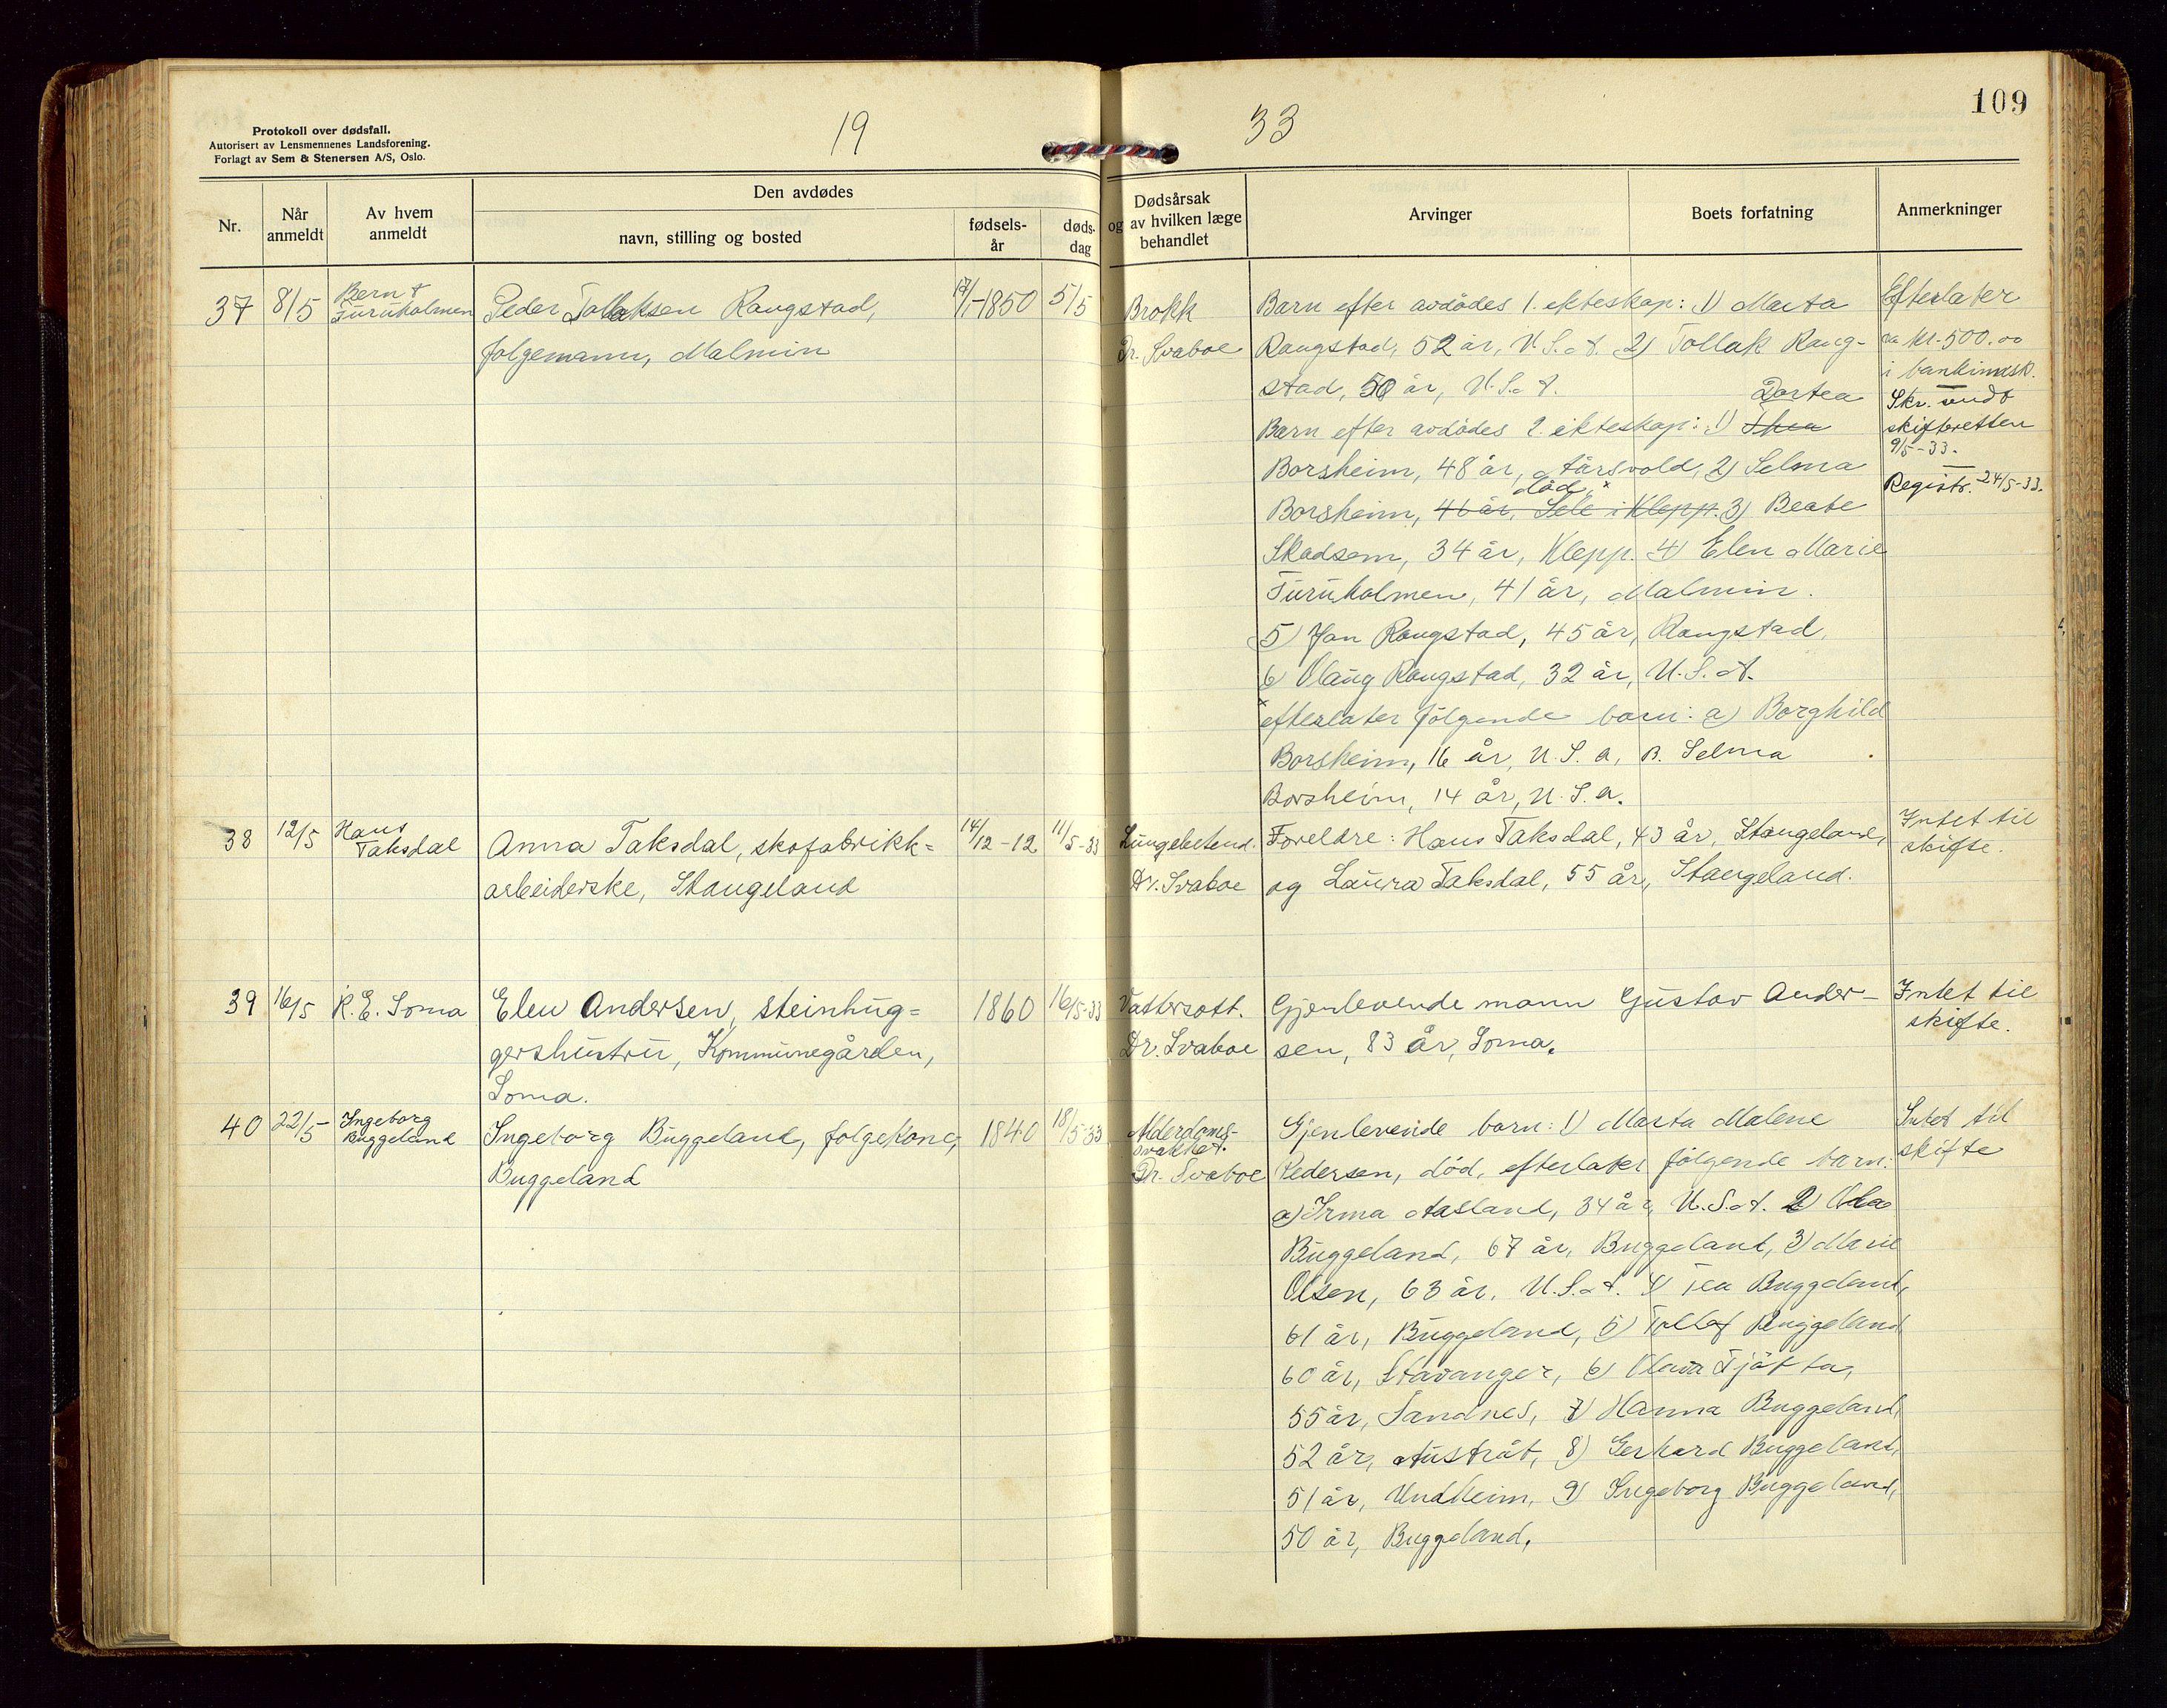 109
19 33
Protokoll over dødsfall.
Autorisert av Lensmennenes Landsforening.
Forlagt av Sem & Stenersen A/S, Oslo.
Nr.
Når anmeldt
Av hvem anmeldt
Den avdødes
navn, stilling og bosted
fødselsår
dødsdag
Dødsårsak
og av hvilken læge
behandlet
Arvinger
Boets forfatning
Anmerkninger
37 8/5
Bernt
Turuholmen
Peder Tollaksen Raugstad,
folgemann, Malmin
-1850 5/5
Brokk
Dr. Svaboe
Barn efter avdødes 1. ekteskap: 1) Marta
Raugstad, 52 år, U.S.A. 2) Tollak Raug-
stad, 50 år, U.S.A.
Dortea
Barn efter avdødes 2. ekteskap: 1) Thea
Borsheim, 48 år, Aarsvold, 2) Selma
død x
Borsheim, 46 år, Sele i Klepp. 3) Beate
Skadsem, 34 år, Klepp. 4) Elen Marie
Turuholmen, 41 år, Malmin.
5) Jan Raugstad, 45 år, Raugstad,
6) Olaug Raugstad, 32 år, U.S.A.
x efterlater følgende barn: a) Borghild
Borsheim, 16 år, U.S.A, B. Selma
Borsheim, 14 år, U.S.A.
Efterlater
ca kr. 500.00
i bankinnsk.
Skr. sendt
skifteretten
9/5-33.
Registr. 24/5-33.
38 12/5
Hans
Taksdal
Anna Taksdal, skofabrikk=
arbeiderske, Stangeland
14/12-12 11/5-33
Lungebetend.
Dr. Svaboe
Foreldre: Hans Taksdal, 43 år, Stangeland,
og Laura Taksdal, 55 år, Stangeland.
Intet til
skifte.
39 16/5 R. E. Soma
Elen Andersen, steinhug=
gershustru, Kommunegården,
Soma.
1860 16/5-33
Vattersott.
Dr. Svaboe
Gjenlevende mann Gustav Ander-
sen, 83 år, Soma.
Intet til
skifte.
40 22/5
Ingeborg
Buggeland
Ingeborg Buggeland, folgekone,
Buggeland
1840 18/5-33
Alderdoms-
svakhet.
Dr. Svaboe
Gjenlevende barn: 1) Marta Malene
Pedersen, død, efterlater følgende barn:
a) Irma Aasland, 34 år, U.S.A. 2) Ola
Buggeland, 67 år, Buggeland, 3) Marie
Olsen, 63 år, U.S.A. 4) Tea Buggeland,
61 år, Buggeland, 5) Tollef Buggeland
60 år, Stavanger, 6) Olava Tjøtta,
55 år, Sandnes, 7) Hanna Buggeland,
52 år, Austråt, 8) Gerhard Buggeland,
51 år, Undheim, 9) Ingeborg Buggeland,
50 år, Buggeland.
Intet til
skifte